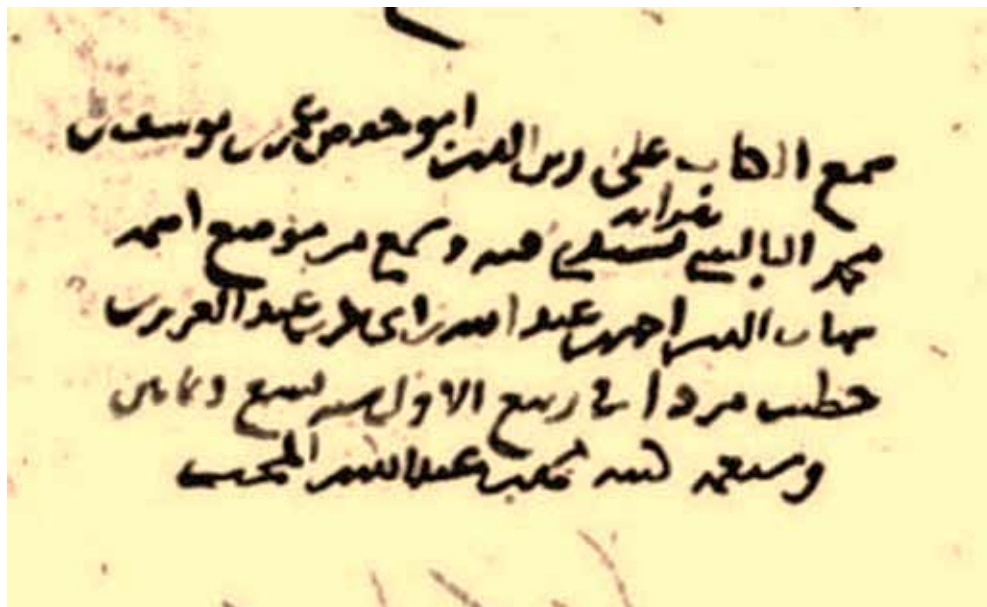 سمع الكتاب على زين الدين ابو حفص عمر بن يوسف بن
بقراءته
محمد البالسي فيه وسمع من موضع اسمه
شهاب الدين احمد بن عبد الله بن ابي عمر بن عبد العزيز بن
خطيب مردا في ربيع الاول سنة تسع وثمانين
وسبعمئة كتبه محمد بن عبد الله بن المحب